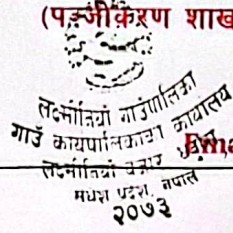 (पञ्जीकरण शाख
लक्ष्मीनियाँ गाउँपालिका
गाउँ कार्यपालिकाको कार्यालय
लक्ष्मीनियाँ बजार
मधेश प्रदेश, नेपाल
२०७३
Ema